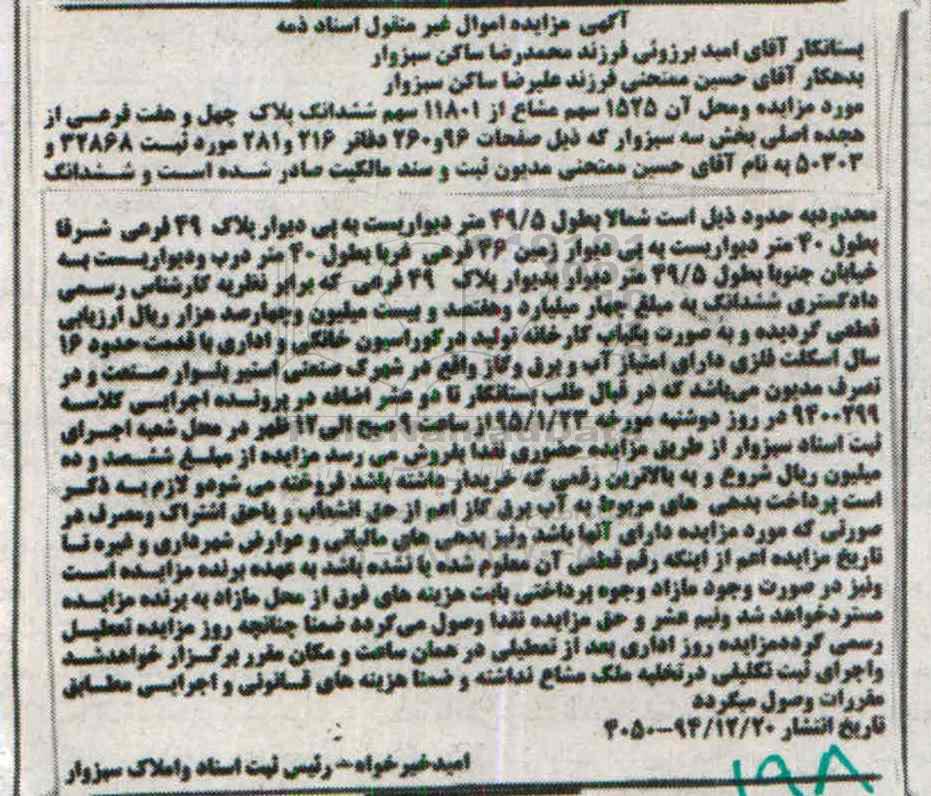 آگهی مزایده اموال غیر منقول اسناد ذمه
بستانکار آقای امید برزوئی فرزند محمدرضا ساکن سبزوار
بدهکار آقای حسین ممتحنی فرزند علیرضا ساکن سبزوار
مورد مزایده ومحل آن ۱۵۲۵ سهم مشاع از ۱۱۸۰۱ سهم ششدانک پلاک چهل و هفت فرعی از
هجده اصلی بخش سه سبزوار که ذیل صفحات ۹۶و۲۶۰ دفاتر ۲۱۶ و۲۸۱ مورد ثبت ۳۲۸۶۸ و
۵۰۳۰۳ به نام آقای حسین ممتحنی مدیون ثبت و سند مالکیت صادر شده است و ششدانک
محدودبه حدود ذیل است شمالا بطول ۴۹/۵ متر دیواریست به پی دیوار پلاک ۴۹ فرعی شرقا
بطول ۴۰ متر دیواریست به پی دیوار زمین ۴۶ فرعی غربا بطول ۴۰ متر درب ودیواریست به
خیابان جنوبا بطول ۴۹/۵ متر دیوار بدیوار پلاک ۴۹ فرعی که برابر نظریه کارشناس رسمی
دادگستری ششدانک به مبلغ چهار میلیارد وهفتصد و بیست میلیون وچهارصد هزار ریال ارزیابی
قطعی گردیده و به صورت یکباب کارخانه تولید درکوراسیون خانگی و اداری با قدمت حدود ۱۶
سال اسکلت فلزی دارای امتیاز آب و برق وگاز واقع در شهرک صنعتی استیر بلوار صنعت و در
تصرف مدیون میباشد که در قبال طلب بستانکار تا دو عشر اضافه در پرونده اجرایی کلاسه
۹۴۰۰۲۹۹ در روز دوشنبه مورخه ۹۵/۱/۲۳از ساعت ۹ صبح الی۱۲ ظهر در محل شعبه اجرای
ثبت اسناد سبزوار از طریق مزایده حضوری نقدا بفروش می رسد مزایده از مبلغ ششصد و ده
میلیون ریال شروع و به بالاترین رقمی که خریدار داشته باشد فروخته می شودو لازم به ذکر
است پرداخت بدهی های مربوط به آب برق گاز اعم از حق انشعاب و یاحق اشتراک ومصرف در
صورتی که مورد مزایده دارای آنها باشد ونیز بدهی های مالیاتی و عوارض شهرداری و غیره تا
تاریخ مزایده اعم از اینکه رقم قطعی آن معلوم شده یا نشده باشد به عهده برنده مزایده است
ونیز در صورت وجود مازاد وجوه پرداختی بابت هزینه های فوق از محل مازاد به برنده مزایده
مستردخواهد شد ونیم عشر و حق مزایده نقدا وصول می‌گردد ضمنا چنانچه روز مزایده تعطیل
رسمی گرددمزایده روز اداری بعد از تعطیلی در همان ساعت و مکان مقرر برگزار خواهدشد
واجرای ثبت تکلیفی درتخلیه ملک مشاع نداشته و ضمنا هزینه های قانونی و اجرایی مطابق
مقررات وصول میگردد
تاریخ انتشار ۹۴/۱۲/۲۰-۴۰۵۰
امیدخیرخواه – رئیس ثبت اسناد واملاک سبزوار
۱۹۸